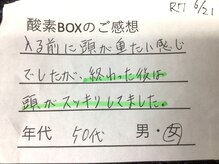 R7.1 6/21
酸素BOXのご感想
入る前に頭が重たい感じ
でしたが、終わった後は
頭がスッキリしてました。
年代 50代 男・女